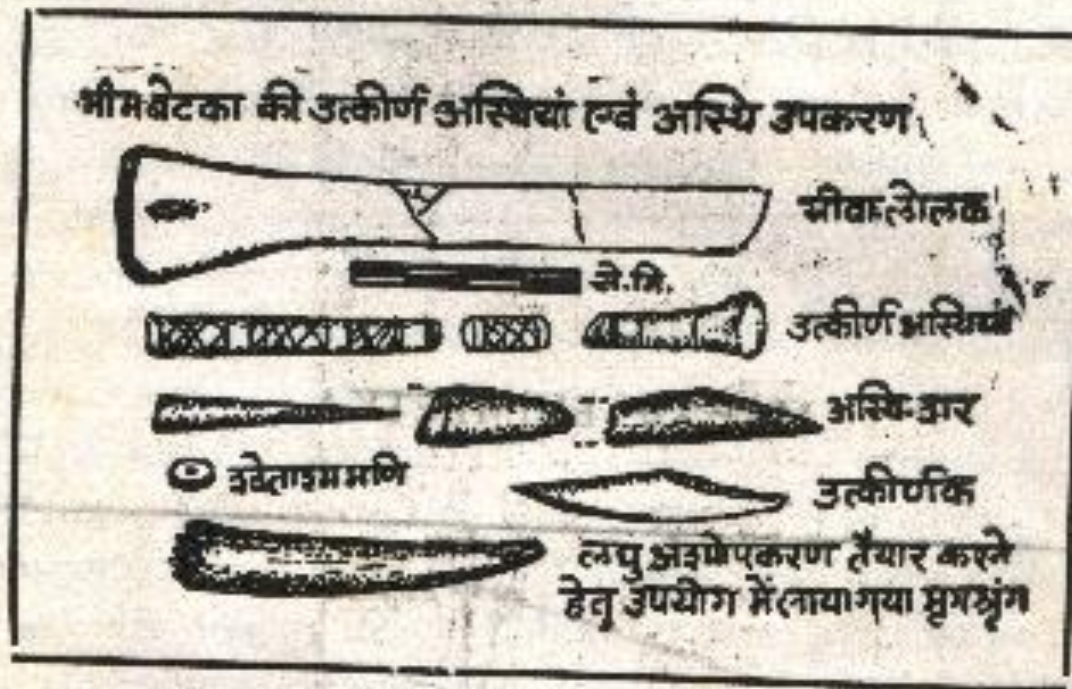 भीमबेटका की उत्कीर्ण अस्थियां एवं अस्थि उपकरण
ग्रीवालोलक
से.मि.
उत्कीर्ण अस्थियां
अस्थि-
श्वेताश्ममणि
उत्कीर्णक
लघु अश्मोपकरण तैयार करने
हेतु उपयोग में लाया गया मृगश्रृंग